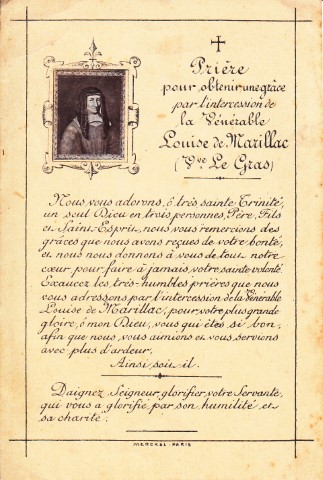 Prière
pour obtenir une grâce
par l'intercession de
la Vénérable
Louise de Marillac
(Vve Le Gras)
Nous vous adorons, ô très sainte Trinité,
un seul Dieu en trois personnes, Père, Fils
et Saint-Esprit, nous vous remercions des
grâces que nous avons reçues de votre bonté,
et nous nous donnons à vous de tout notre
cœur pour faire à jamais, votre sainte volonté.
Exaucez les très-humbles prières que nous
vous adressons par l'intercession de la Vénérable
Louise de Marillac, pour votre plus grande
gloire, ô mon Dieu, vous qui êtes si bon,
afin que nous vous aimions et vous servions
avec plus d'ardeur.
Ainsi soit-il.
Daignez Seigneur, glorifier, votre Servante,
qui vous a glorifié par son humilité et
sa charité.
MERCKEL-PARIS